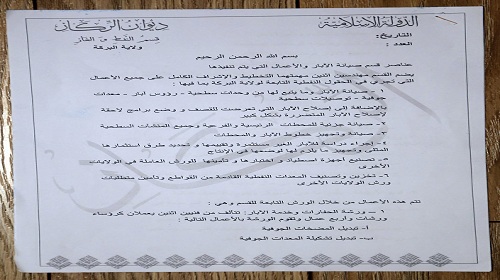 الدولة الإسلامية
ديوان الركاز
التاريخ:
العدد :
قسم النفط و الغاز
ولاية البركة
بسم الله الرحمن الرحيم
عناصر قسم صيانة الآبار والأعمال التي يتم تنفيذها
يضم القسم مهندسين اثنين مهمتهما التخطيط والإشراف الكامل على جميع الأعمال
التي تجري في الحقول النفطية التابعة لولاية البركة بما فيها
١ – صيانة الآبار وما يتبع لها من وحدات سطحية - رؤوس آبار - معدات
جوفية - توصيلات سطحية
بالإضافة إلى إصلاح الآبار التي تعرضت للقصف و وضع برامج لاحقة
لإصلاح الآبار المتضررة بشكل كبير
٢- صيانة جزئية للمحطات الرئيسية والفرعية وجميع المنشآت السطحية
٣ – صيانة وتجهيز خطوط الآبار والمحطات
٤- إجراء دراسة للآبار الغير مستثمرة وتقييمها و تحديد طرق استثمارها
المثلى وتجهيز ما يلزم لها لوضعها في الإنتاج
٥- تصنيع أجهزة اصطياد و اختبارها و تأمينها للورش العاملة في الولايات
الأخرى
٦- تخزين وتصنيف المعدات النفطية القادمة من القواطع وتأمين متطلبات
ورش الولايات الأخرى
تتم هذه الأعمال من خلال الورش التابعة للقسم وهي :
١ – ورشة الحفارات وخدمة الآبار: تتألف من فنيين اثنين يعملان كرؤساء
ورشات وأربع عمال وتقوم الورشة بالأعمال التالية :
أ- تبديل المضخات الجوفية
ب- تبديل تشكيلة المعدات الجوفية